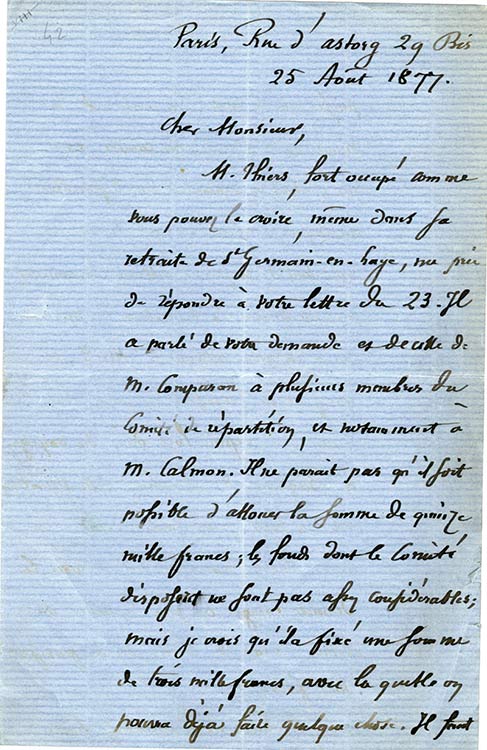 42
Paris, Rue d'astorg 29 Bis
25 Août 1877.
Cher Monsieur,
M. Thiers, fort occupé comme
vous pouvez le croire, même dans sa
retraite de St Germain-en-Laye, me prie
de répondre à votre lettre du 23. Il
a parlé de votre demande et de celle de
M. à plusieurs membres du
Comité de répartition, et notamment à
M. Calmon. Il ne parait pas qu'il soit
possible d'allouer la somme de quinze
mille francs; les fonds dont le Comité
disposent ne sont pas assez considérables;
mais je crois qu'il a fixé une somme
de trois mille francs, avec la quelle on
pourra déjà faire quelque chose. Il faut